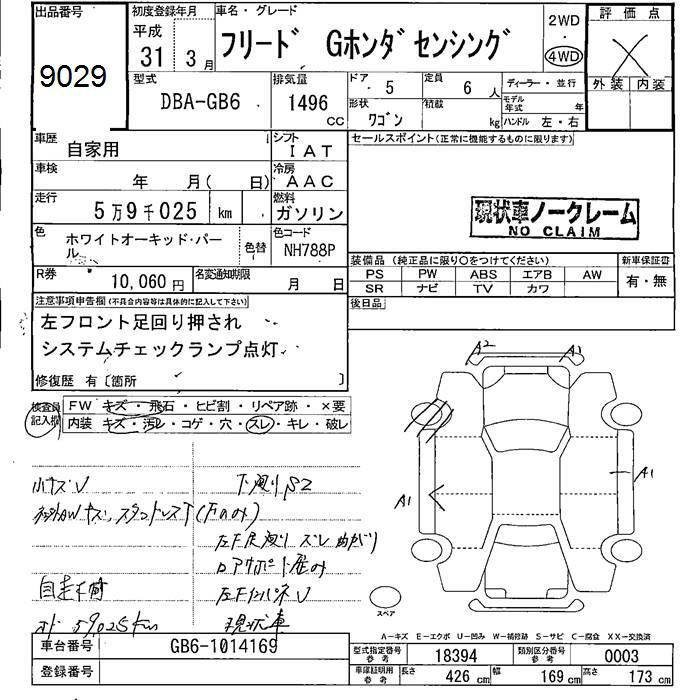 出品番号
9029
初度登録年月
平成
31 3 月
車名・グレード
フリード Gホンダセンシング
2WD
・
4WD
評価点
X
外装 内装
型式
DBA-GB6
排気量
1496
cc
ドア 5
定員 6 人
形状 ワゴン
積載 kg
ディーラー・並行
モデル年式 年
ハンドル 左・右
車歴
自家用
シフト
IAT
車検
年 月( 日)
冷房
AAC
走行
5万9千025 km
燃料
ガソリン
色
ホワイトオーキッド・パール
色替
色コード
NH788P
R券
10,060円
名変通知期限
月 日
セールスポイント(正常に機能するものに限ります)
現状車ノークレーム
NO CLAIM
装備品(純正品に限り○をつけてください)
新車保証書
PS PW ABS エアB AW
SR ナビ TV カワ
有・無
後日品
注意事項申告欄(不具合内容等は具体的に記入して下さい)
左フロント足回り押され
システムチェックランプ点灯.
修復歴 有〔箇所 〕
検査員記入欄
FW キズ・飛石・ヒビ割・リペア跡・×要
内装 キズ・汚れ・コゲ・穴・スレ・キレ・破レ
小キズU
下廻りSZ
自走不可
ロアサポート歪み
左FインパネU
現状車
メーター 59,025km
A2
A1
A1
A1
スペア
A-キズ E-エクボ U-凹み W-補修跡 S-サビ C-腐食 XX-交換済
車台番号
GB6-1014169
登録番号
型式指定番号
参考
18394
類別区分番号
参考
0003
車庫証明用
参考
長さ 426 cm
幅 169 cm
高さ 173 cm